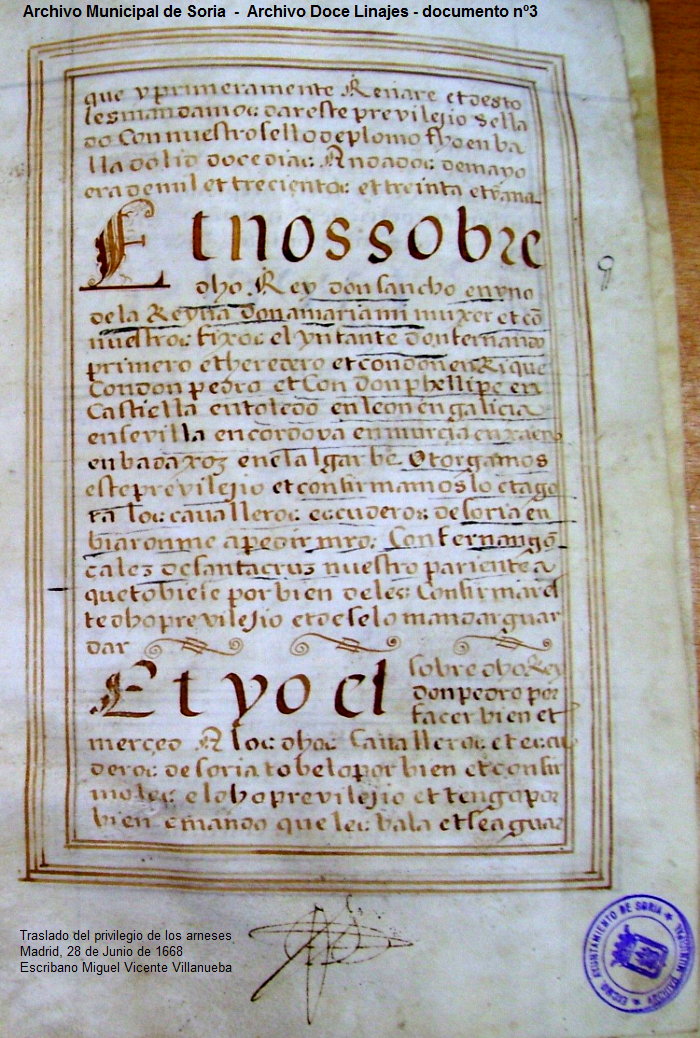 Archivo Municipal de Soria - Archivo Doce Linajes - documento nº3
que y primeramente Renare et desto
les mandamos dar este previlejio sella
do Con nuestro sello de plomo fho en ba
lladolid doce dias Andados de mayo
era de mil et trecientos et treinta et
Et nos sobre
dho. Rey don sancho en vno
de la Reyna dona maria mi muxer et cō
nuestros fixos el ynfante don fernando
primero et heredero et con don enRique
Con don pedro et Con don phellipe en
Castiella en toledo en leon en galicia
en sevilla en cordova en murcia en xaen
en badaxoz en el algarbe Otorgamos
este previlejio et confirmamos lo et ago
ra los cavalleros escuderos de soria en
biaronme a pedir mrd; Con fernan gō
calez de santa cruz nuestro pariente a
que tobiese por bien de les Confirmar el
te dho previlejio et de se lo mandar guar
dar
Et yo el sobre dho Rey
don pedro por
facer bien et
merçed A los dhos Cavalleros et escu
deros de soria tobelo por bien et confir
moles el dho previlejio et tengo por
bien e mando que les bala et sea guar
Traslado del privilegio de los arneses
Madrid, 28 de Junio de 1668
Escribano Miguel Vicente Villanueba
AYUNTAMIENTO DE SORIA